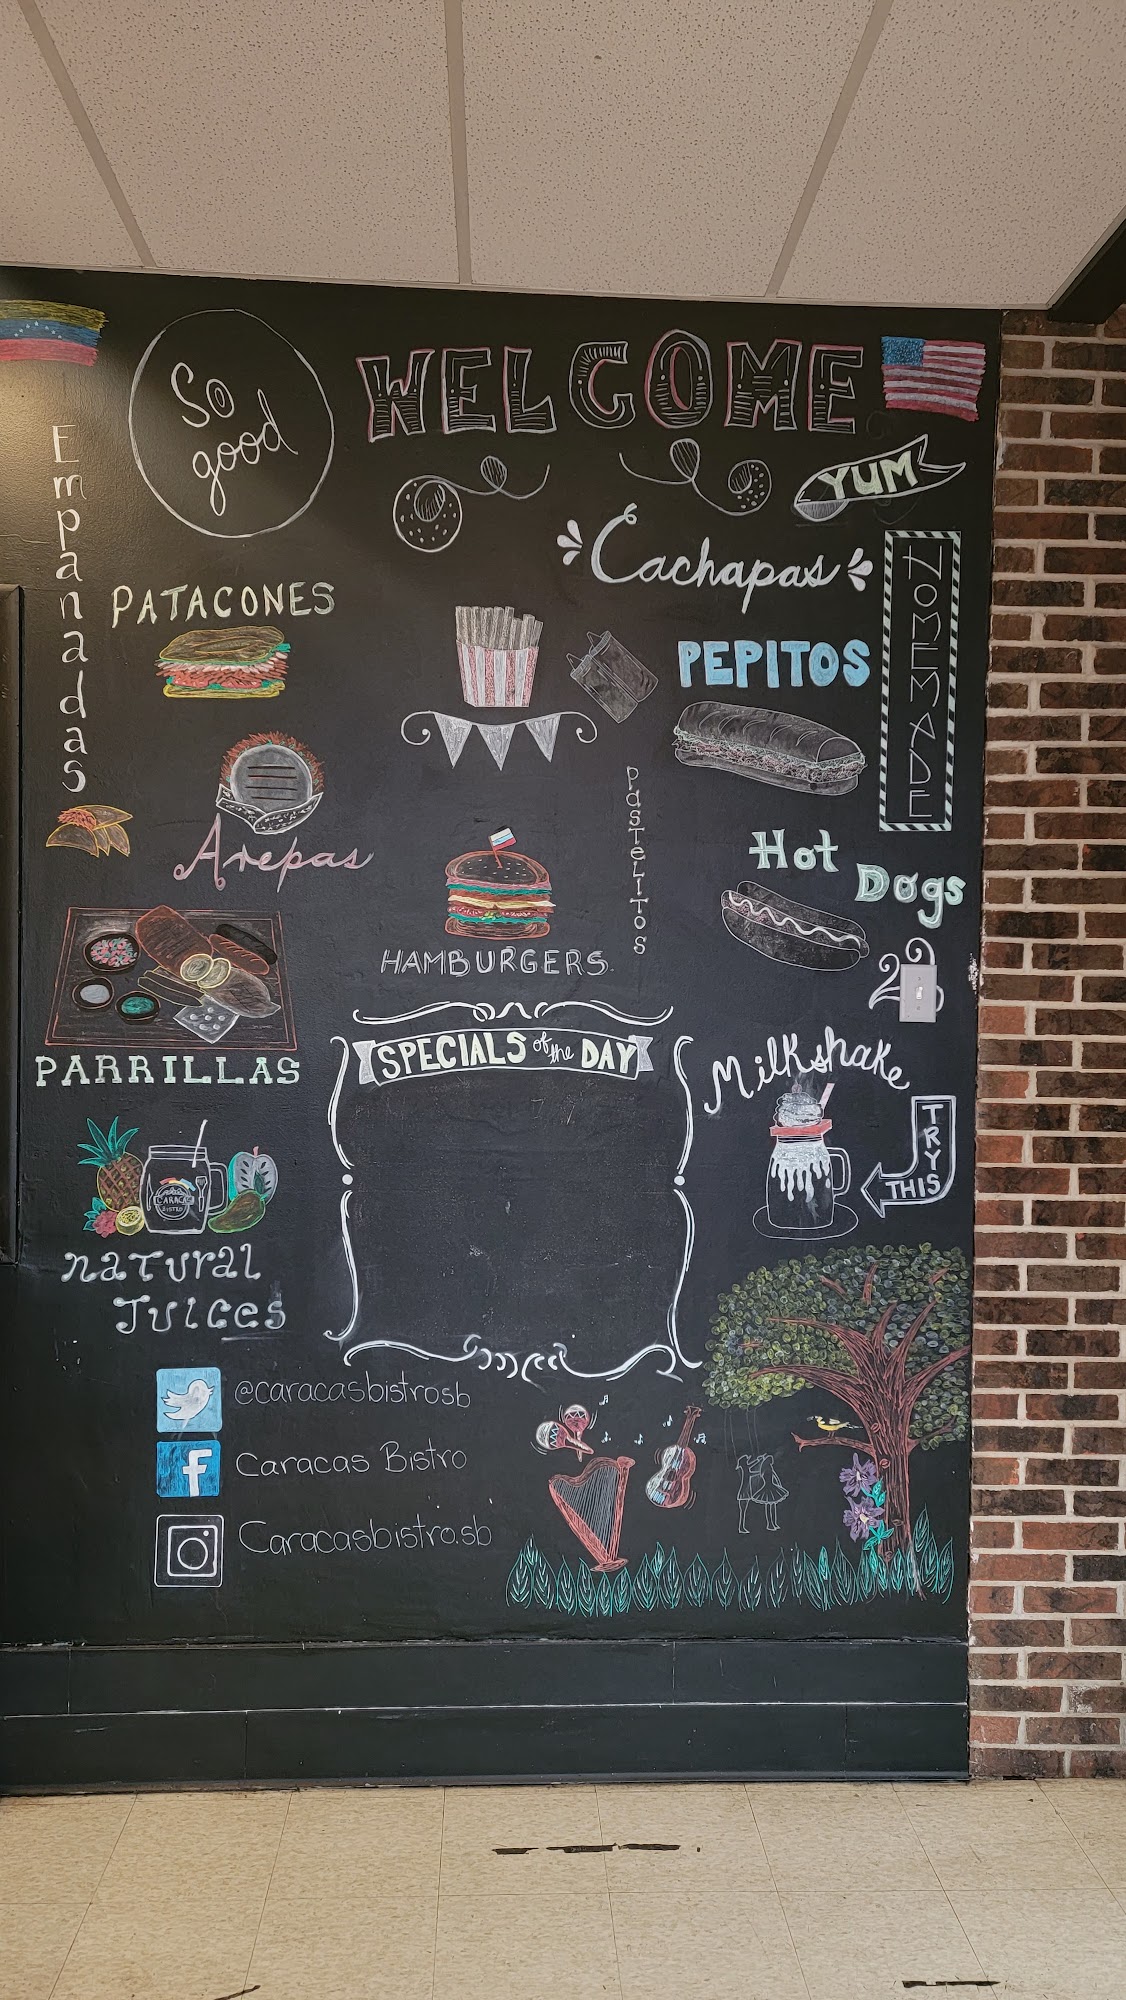 So
good
WELCOME
YUM
Empanadas
Cachapas
HOMEMADE
PATACONES
PEPITOS
Arepas
PASTELITOS
Hot
Dogs
HAMBURGERS
PARRILLAS
SPECIALS of the DAY
Milkshake
TRY
THIS
CARACAS
BISTRO
Natural
Juices
@caracasbistrosb
f
Caracas Bistro
Caracasbistro.sb